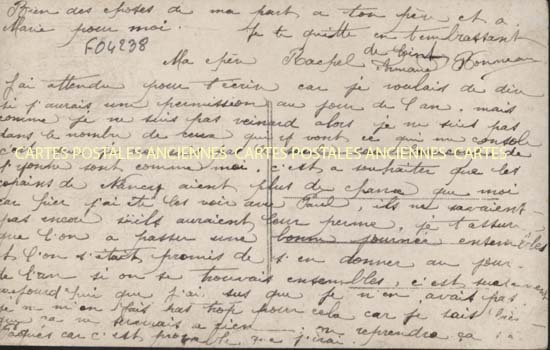 Bien des choses de ma part a ton père et a
Marie pour moi. Je te quitte en t'embrassant
de loin
F04238
Ma chère Rachel Armand Bonneau
J'ai attendu pour t'écrir car je voulais te dir
si j'aurais une permission au jour de l'an, mais
comme je ne suis pas veinard alors je ne suis pas
dans le nombre de ceux qui y vont ce qui me console
CARTES POSTALES ANCIENNES CARTES POSTALES ANCIENNES
sont comme moi, c'est a souhaiter que les
copains de Nancy aient plus de chance que moi
car hier j'ai été les voir avec Paul, ils ne savaient
pas encore s'ils auraient leur perme, je t'assur
que l'on a passer une bonne journée ensembles
et l'on s'était promis de s'en donner au jour
de l'an si on se trouvais ensembles, c'est
aujourd'hui que j'ai sus que je n'en avais pas
je m'en fais pas trop pour cela car je sais
que ça ne on reprendra ça
car c'est que j'irai